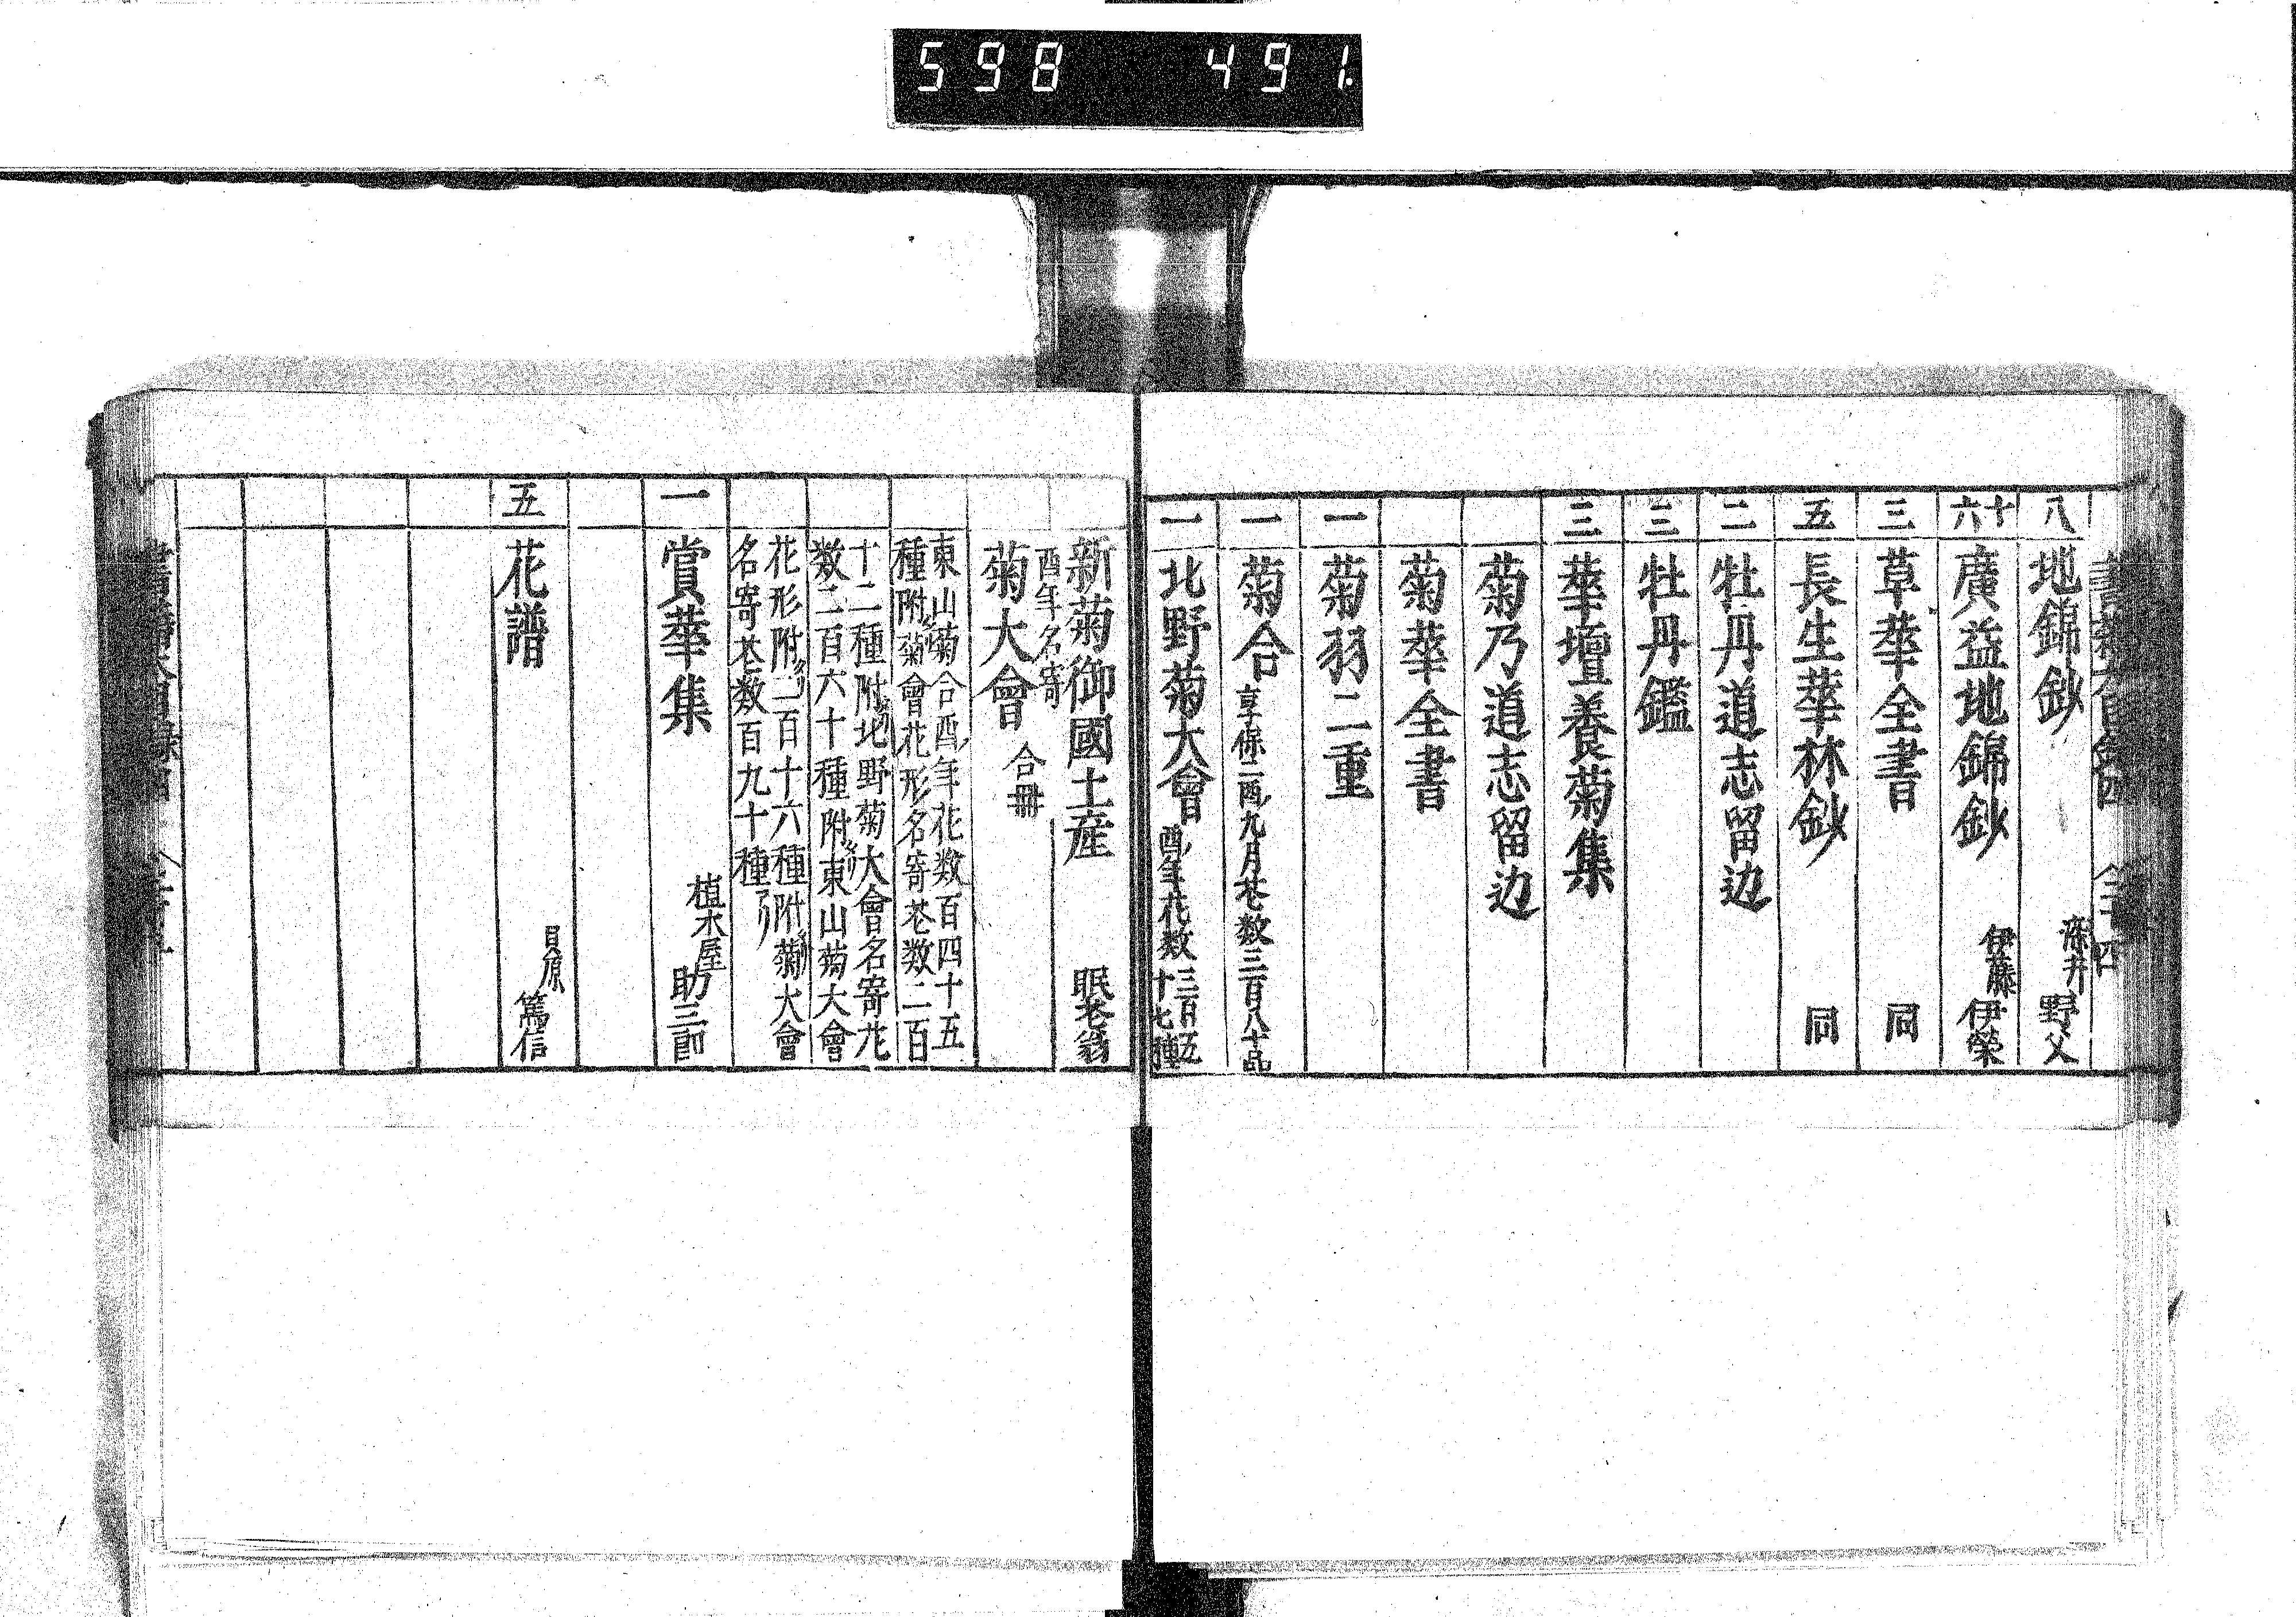 598 491.
八 地錦鈔 深井 野父
十六 廣益地錦鈔 伊藤 伊榮
三 草華全書 同
五 長生華林鈔 同
二 牡丹道志留边
三 牡丹鑑
三 華壇養菊集
菊乃道志留边
菊華全書
一 菊羽二重
一 菊合 享保二酉ノ九月花数三百八十品
一 北野菊大會 酉ノ年花数三百五十七種
新菊御國土産 眠花翁
酉年名寄
菊大會 合冊
東山菊合酉ノ年花数百四十五
種附菊會花形名寄花数二百
十二種附北野菊大會名寄花
数二百六十種附東山菊大會
花形附二百十六種附菊大會
名寄花数百九十種
一 賞華集 植木屋 助三郎
五 花譜 貝原 篤信